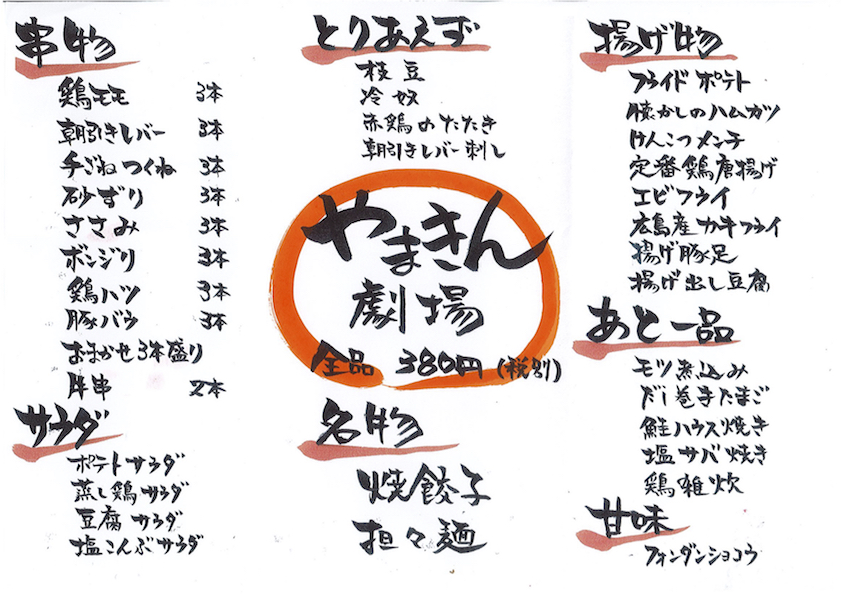 串物
鶏モモ 3本
朝引きレバー 3本
手ごねつくね 3本
砂ずり 3本
ささみ 3本
ボンジリ 3本
鶏ハツ 3本
豚バラ 3本
おまかせ3本盛り
牛串 2本
サラダ
ポテトサラダ
蒸し鶏サラダ
豆腐サラダ
塩こんぶサラダ
とりあえず
枝豆
冷奴
赤鶏のたたき
朝引きレバー刺し
やまきん
劇場
全品 380円(税別)
名物
焼餃子
担々麺
揚げ物
フライドポテト
懐かしのハムカツ
げんこつメンチ
定番鶏唐揚げ
エビフライ
広島産カキフライ
揚げ豚足
揚げ出し豆腐
あと一品
モツ煮込み
だし巻きたまご
鮭ハラス焼き
塩サバ焼き
鶏雑炊
甘味
フォンダンショコラ